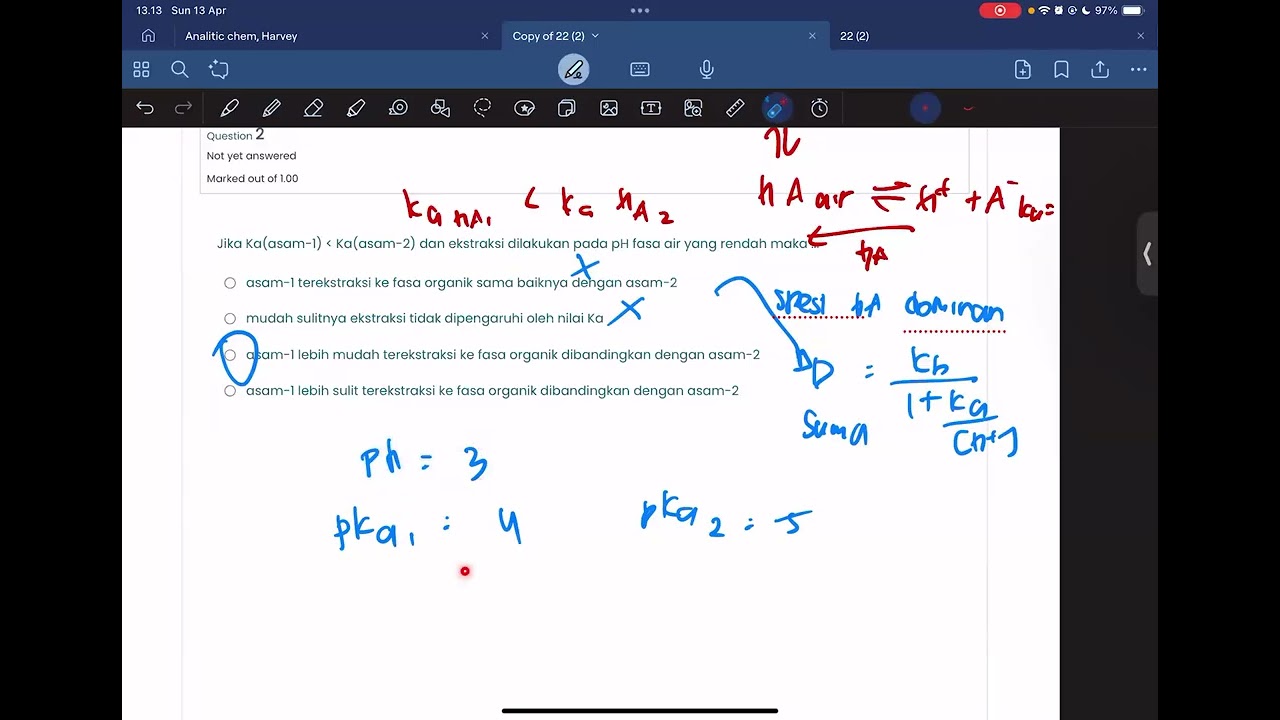 13.13 Sun 13 Apr
97%
Analitic chem, Harvey
Copy of 22 (2)
22 (2)
Question 2
Not yet answered
Marked out of 1.00
Ka HA1 < Ka HA2
HA air ⇌ H+ + A- Ka=
HA
Jika Ka(asam-1) < Ka(asam-2) dan ekstraksi dilakukan pada pH fasa air yang rendah maka ...
asam-1 terekstraksi ke fasa organik sama baiknya dengan asam-2
mudah sulitnya ekstraksi tidak dipengaruhi oleh nilai Ka
asam-1 lebih mudah terekstraksi ke fasa organik dibandingkan dengan asam-2
asam-1 lebih sulit terekstraksi ke fasa organik dibandingkan dengan asam-2
spesi HA dominan
D = KD / 1 + Ka / [H+]
sama
pH = 3
pKa1 = 4
pKa2 = 5